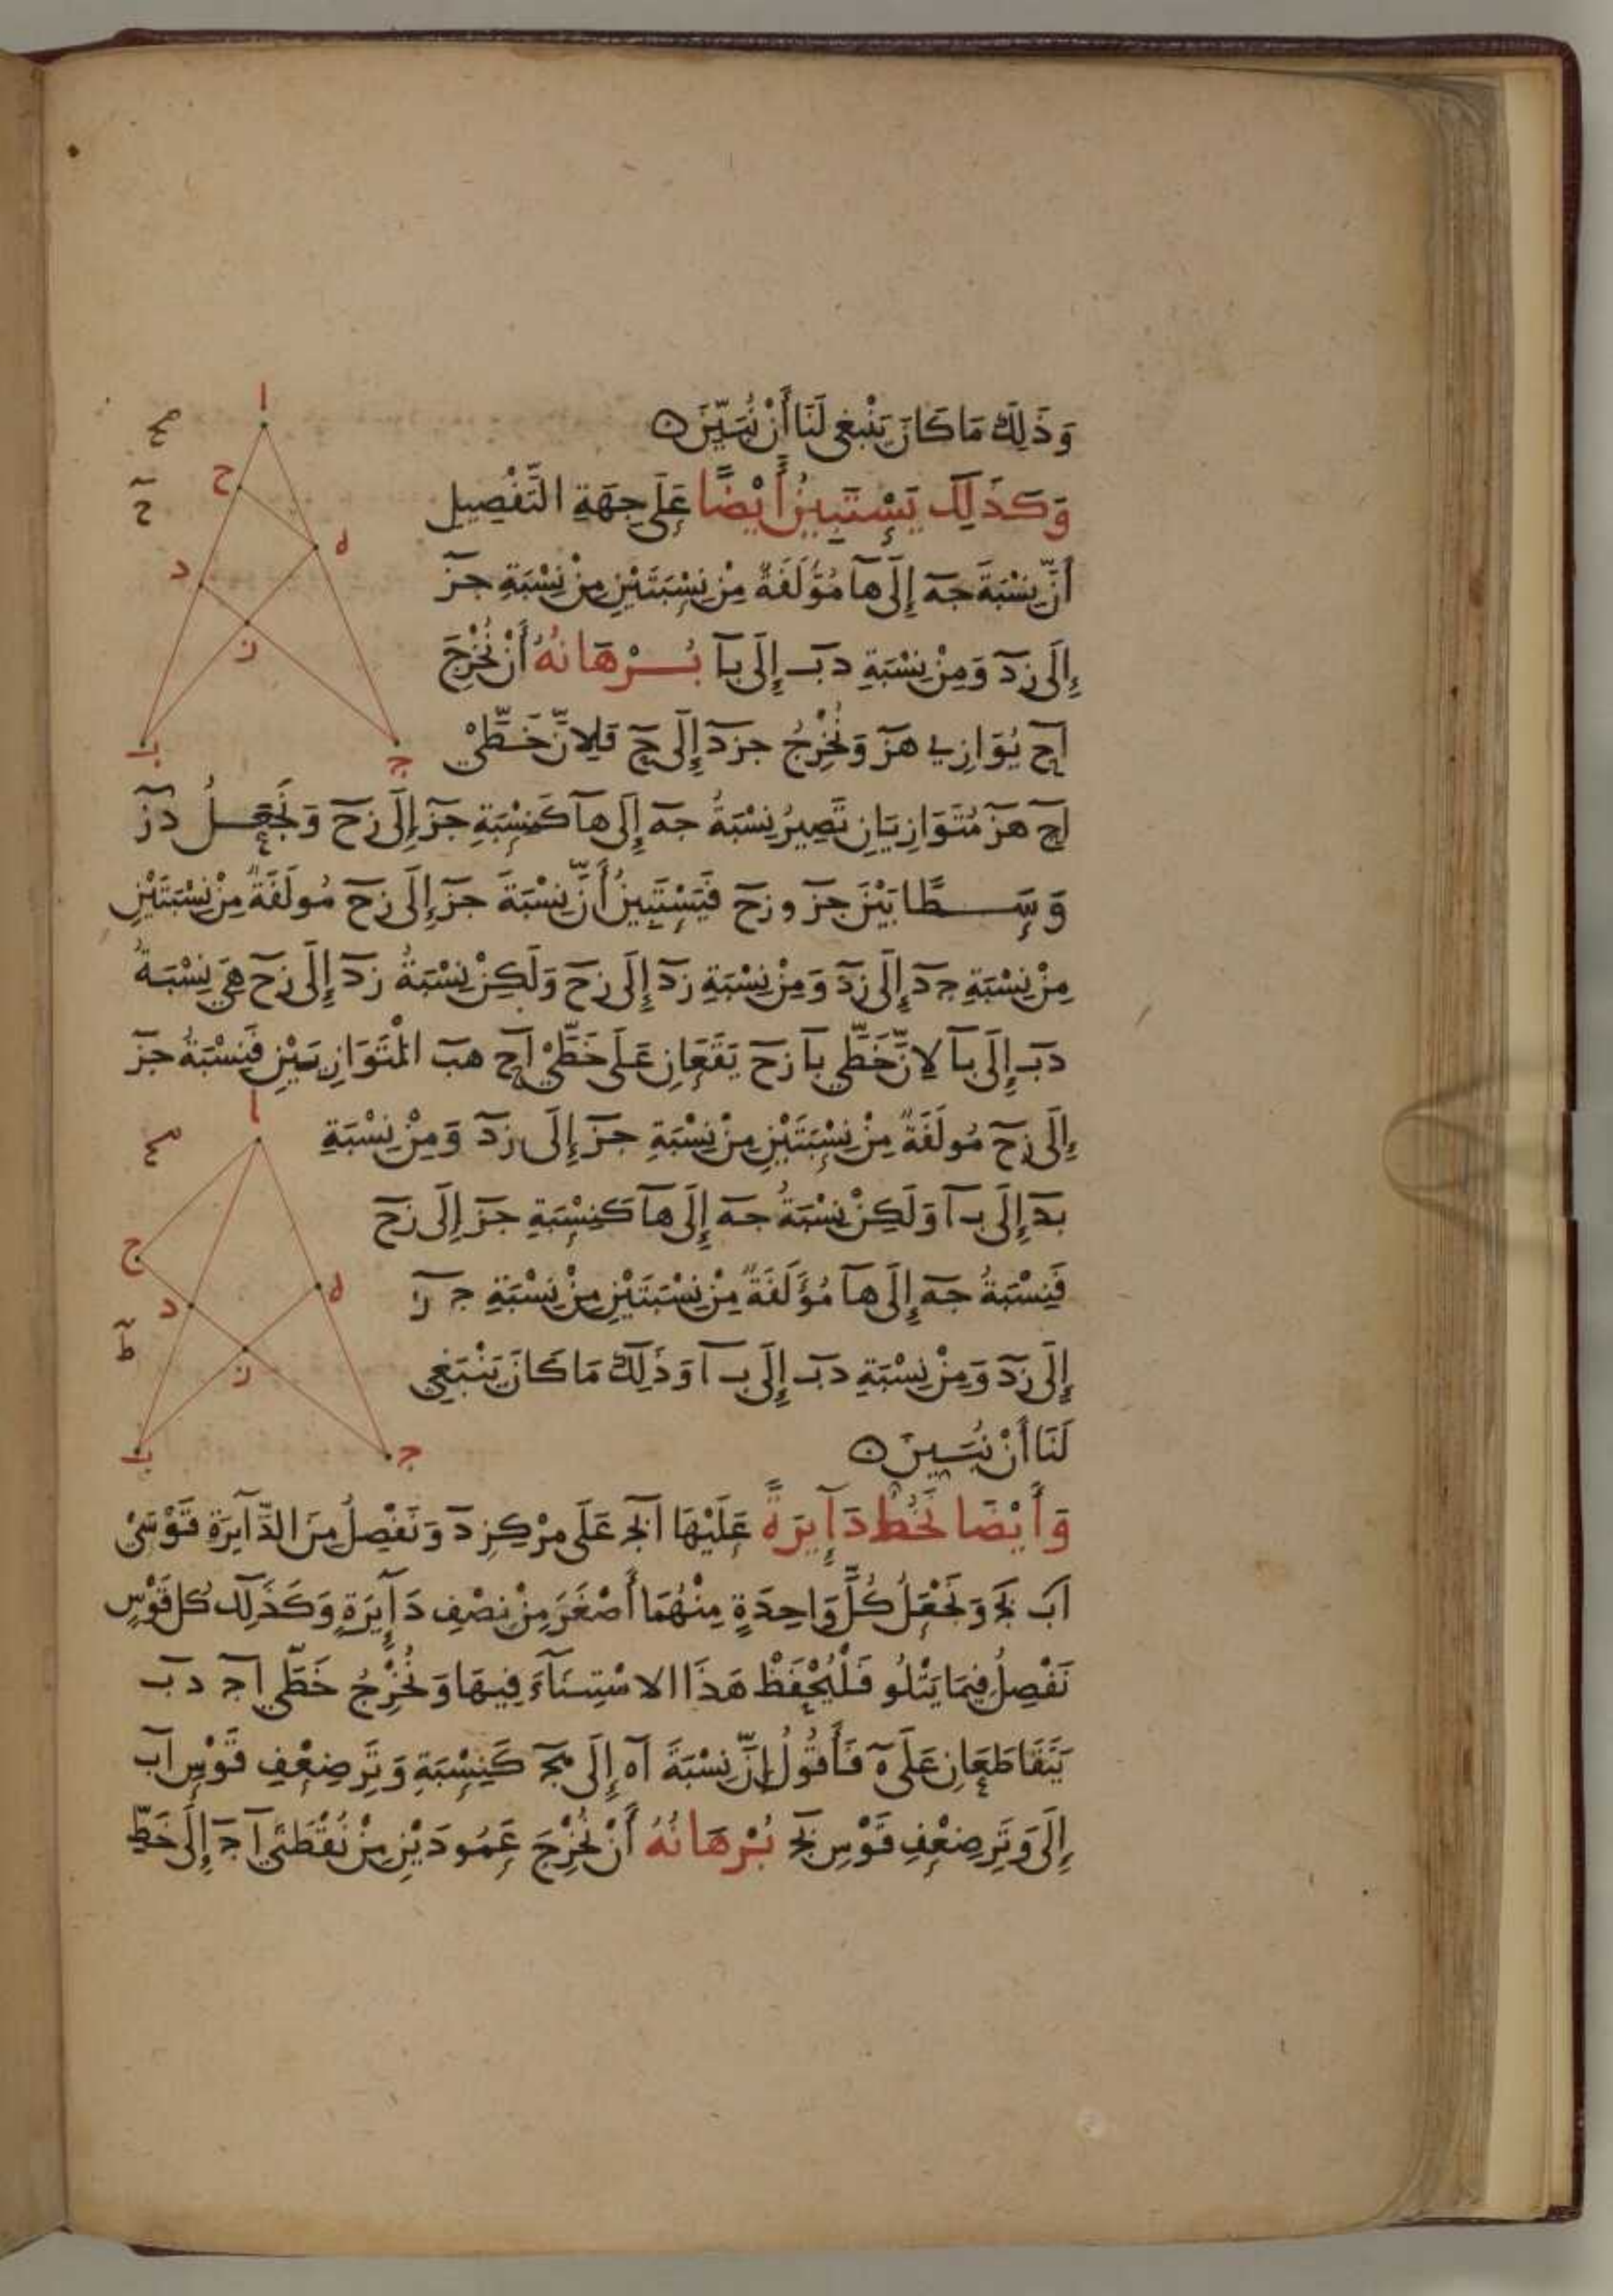 وَذَلِكَ مَا كَانَ يَنْبَغِي لَنَا أَنْ نُبَيِّنَ ه
وَكَذَلِكَ يَسْتَبِينُ أَيْضًا عَلَى جِهَةِ التَّفْصِيل
أَنَّ نِسْبَةَ جه إِلَى ها مُؤَلَفَةٌ مِنْ نِسْبَتَيْنِ مِنْ نِسْبَةِ جز
إِلَى زد وَمِنْ نِسْبَةِ دب إِلَى با بُرْهَانُهُ أَنْ نُخْرِجَ
اح يُوَازِي هز وَنُخْرِجُ جزد إِلَى ح فَلِانَّ خَطَّيْ
اح هز مُتَوَازِيَانِ تَصِيرُ نِسْبَةُ جه إِلَى ها كَنِسْبَةِ جز إِلَى زح وَنَجْعَلُ دز
وَسَطًا بَيْنَ جز و زح فَيَسْتَبِينُ أَنَّ نِسْبَةَ جز إِلَى زح مُولَفَةٌ مِنْ نِسْبَتَيْنِ
مِنْ نِسْبَةِ جد إِلَى زد وَمِنْ نِسْبَةِ زد إِلَى زح وَلَكِنْ نِسْبَةُ زد إِلَى زح هِيَ نِسْبَةُ
دب إِلَى با لانَّ خَطَّي با زح يَقَعَانِ عَلَى خَطَّيْ اح هب الْمُتَوَازِيَيْنِ فَنِسْبَةُ جز
إِلَى زح مُولَفَةٌ مِنْ نِسْبَتَيْنِ مِنْ نِسْبَةِ جز إِلَى زد وَمِنْ نِسْبَةِ
بد إِلَى با وَلَكِنْ نِسْبَةُ جه إِلَى ها كَنِسْبَةِ جز إِلَى زح
فَنِسْبَةُ جه إِلَى ها مُؤَلَفَةٌ مِنْ نِسْبَتَيْنِ مِنْ نِسْبَةِ جز
إِلَى زد وَمِنْ نِسْبَةِ دب إِلَى با وَذَلِكَ مَا كَانَ يَنْبَغِي
لَنَا أَنْ نُبَيِنَ ه
وَأَيْضًا نَخُطُّ دَآيِرَةً عَلَيْهَا ابج عَلَى مَرْكِزِ د وَنَفْصِلُ مِنَ الدَّآيِرَةِ قَوْسَيْ
اب بج وَنَجْعَلُ كُلَّ وَاحِدَةٍ مِنْهُمَا أَصْغَرَ مِنْ نِصْفِ دَآيِرَةٍ وَكَذَلِكَ كُل قَوْسٍ
نَفْصِلُ فِيمَا يَتْلُو فَلْيُحْفَظْ هَذَا الاسْتِثنَآءَ فِيهَا وَنُخْرِجُ خَطَّي اج دب
يَتَقَاطَعَانِ عَلَى ه فَأَقُولُ إِنَّ نِسْبَةَ اه إِلَى هج كَنِسْبَةِ وَتَرِ ضِعْفِ قَوْسِ اب
إِلَى وَتَرِ ضِعْفِ قَوْسِ بج بُرْهَانُهُ أَنْ نُخْرِجَ عَمُودَيْنِ مِنْ نُقْطَتَيْ ا ج إِلَى خَطِّ
ا
ح
ح
ه
د
ز
ب
ج
ا
ح
ه
د
ط
ز
ب
ج